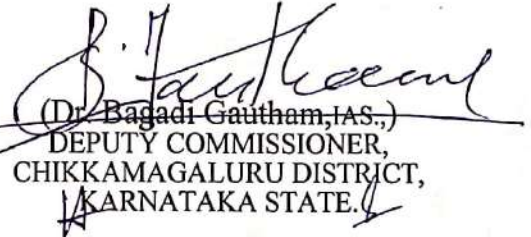 (Dr. Bagadi Gautham,IAS.,)
DEPUTY COMMISSIONER,
CHIKKAMAGALURU DISTRICT,
KARNATAKA STATE.